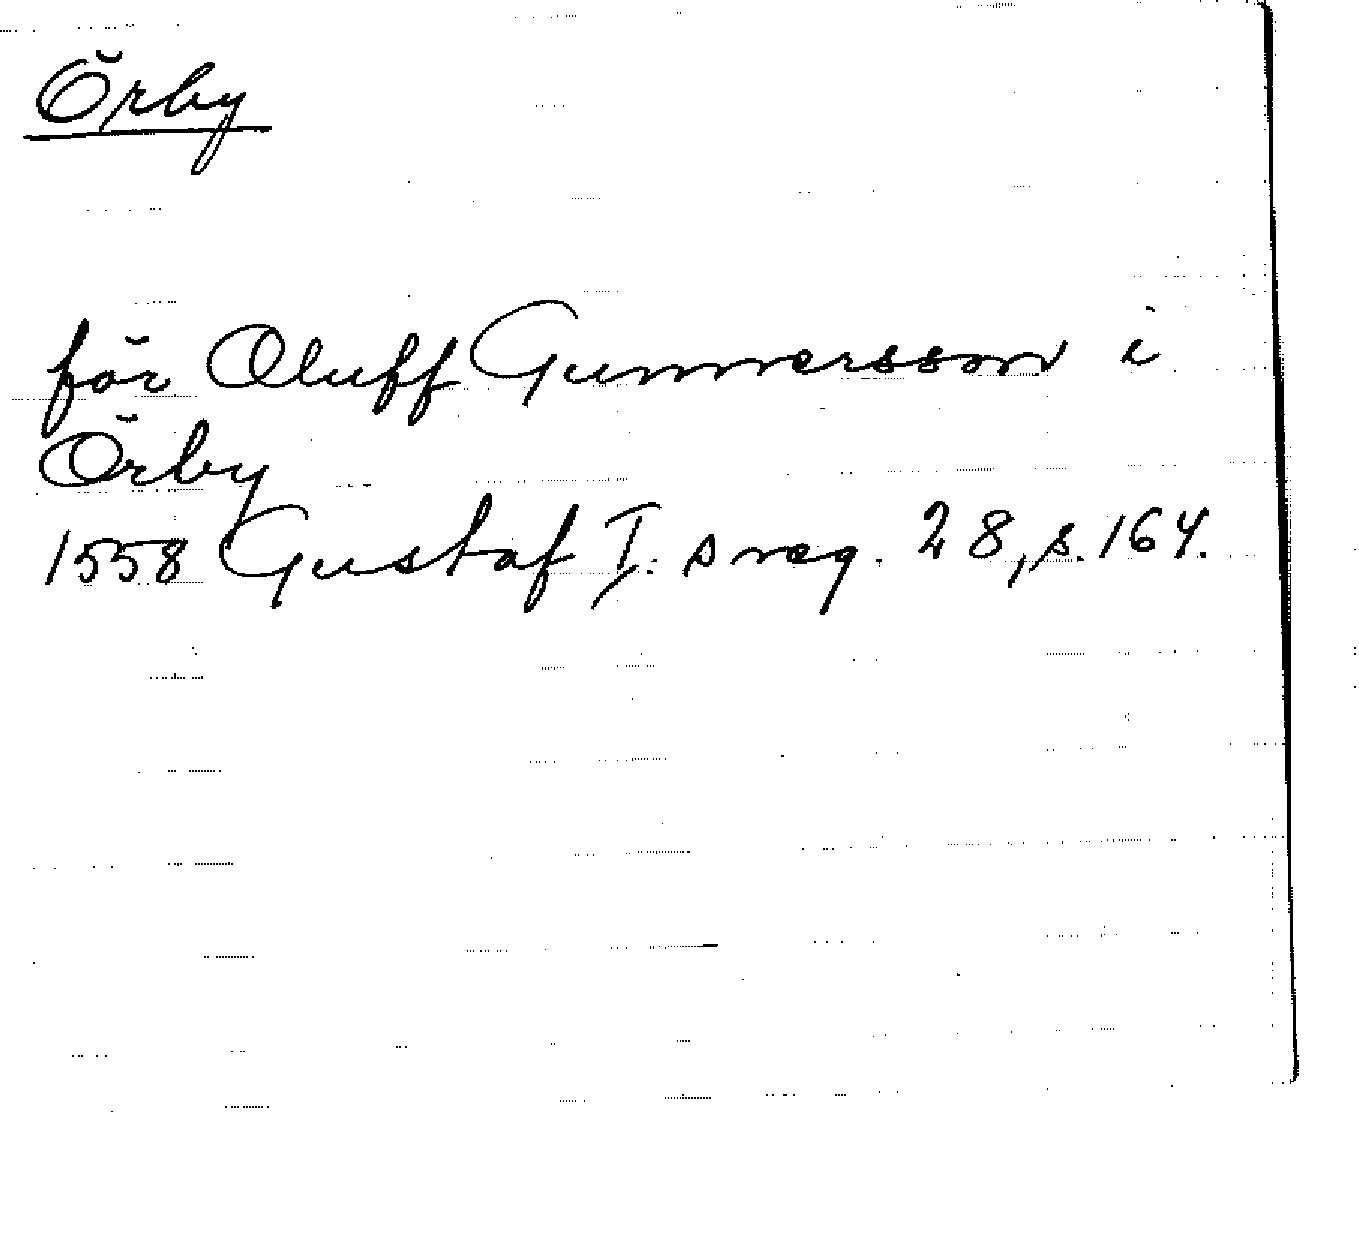 Örby
för Oluff Gunnersson i
Örby
1558 Gustaf I:s reg. 28, s. 164.